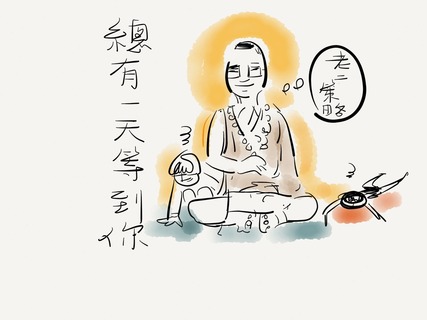 總有一天等到你
老二
策略